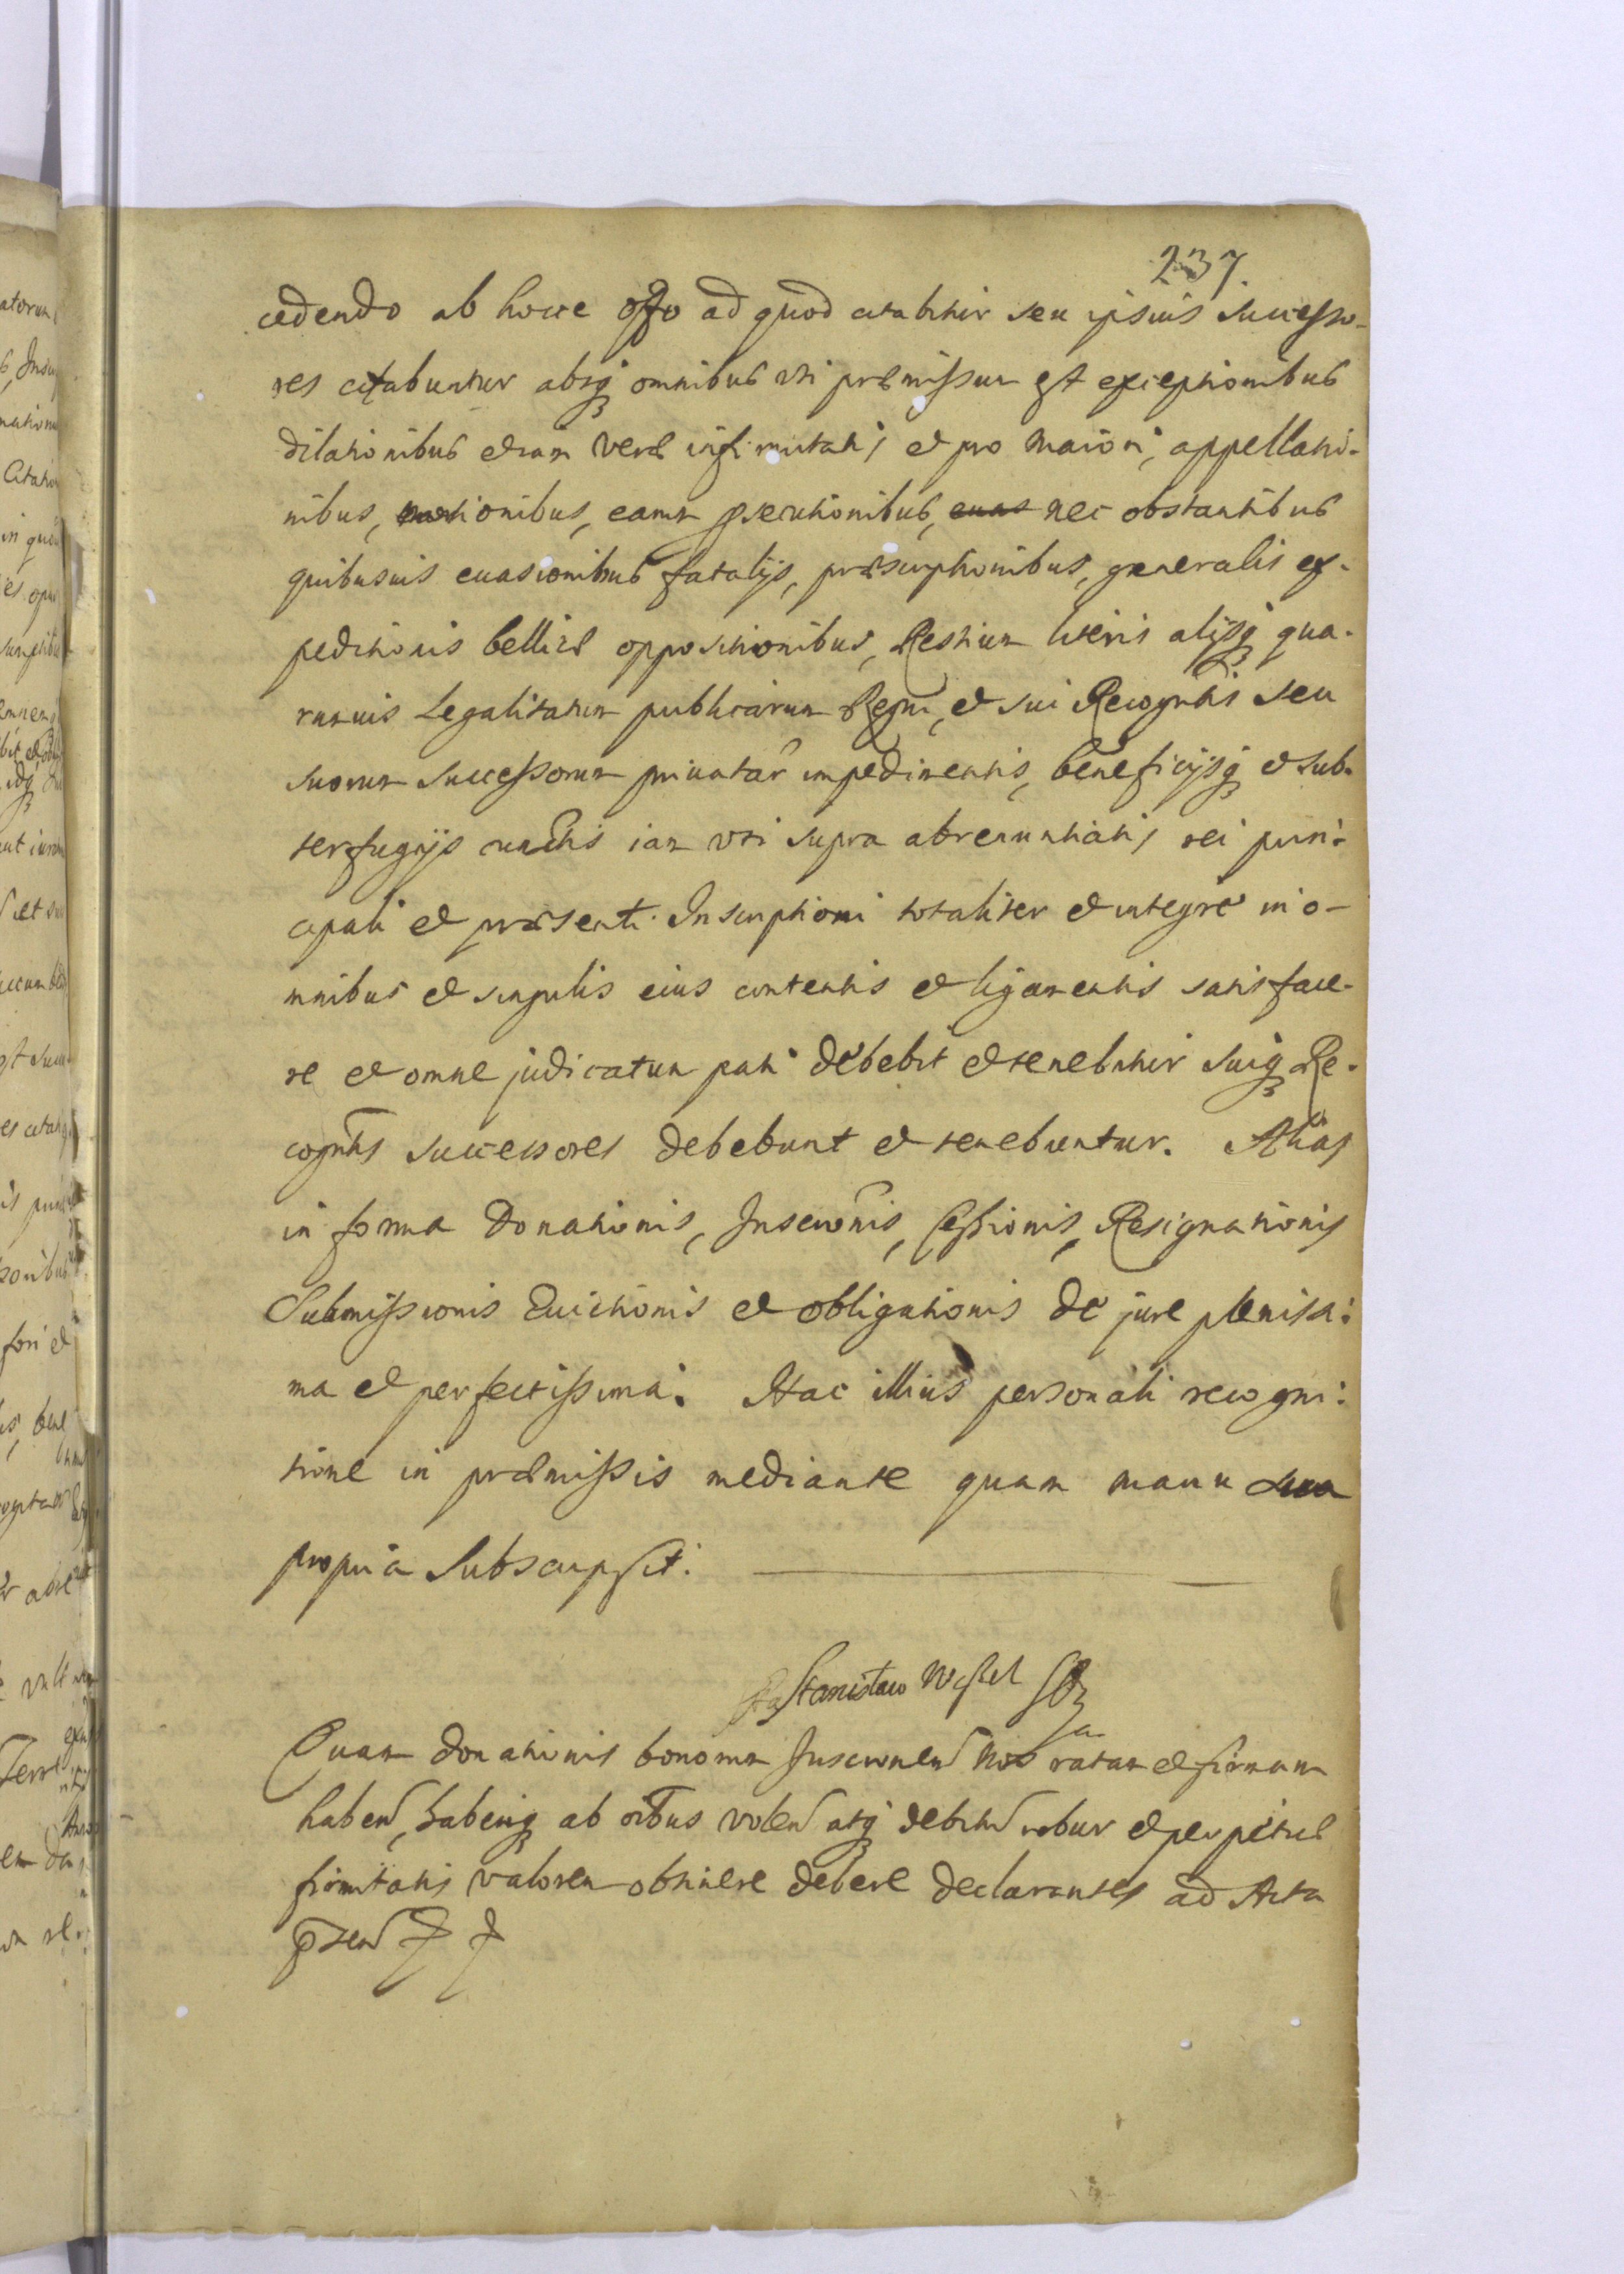 237.
cedendo ab hocce offo ad quod citabitur seu ipsius successo-
res citabuntur absq omnibus uti præmissum est exceptionibus
dilationibus etiam veræ infirmitatis et pro maiori, appellatio-
nibus, motionibus, earum prosecutionibus, nec obstantibus
quibusuis euasionibus fatalijs, præscriptionibus, generalis ex-
peditionis bellicæ oppositionibus, Restium literis alijsq qua-
rumuis Legalitatum publicarum Regni, et sui Recogntis seu
suorum successorum priuatar impedimentis, beneficijsq et sub-
terfugijs cunctis iam uti supra abrenuntiatis rei prin:
cipali et præsenti Inscriptioni totaliter et integre in o-
mnibus et singulis eius contentis et ligamentis satisface-
re et omne judicatum pati debebit et tenebitur suiq Re-
cogntis successores debebunt et tenebuntur. Alias
in forma Donationis, Inscronis, Cessionis, Resignationis
Submissionis Euictionis et obligationis de jure plenissi:
ma et perfectissima. Hac illius personali recogni:
tione in præmissis mediante quam manu sua
propria Subscripsit.
Stanisław Wessel
Quam donationis bonorum Inscronem nos ratam et firmam
haben, haberiq ab oībus volen atq debitu robur et perpetuæ
firmitatis valorem obtinere debere declarantes ad Acta
pñten